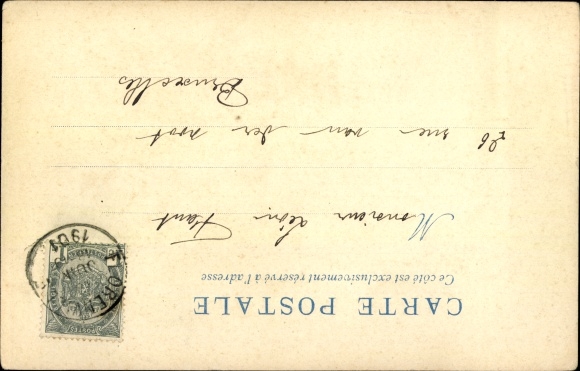 CARTE POSTALE
Ce côté est exclusivement réservé à l'adresse
Monsieur Léon
26 rue van der
Bruxelles
POSTES
1901